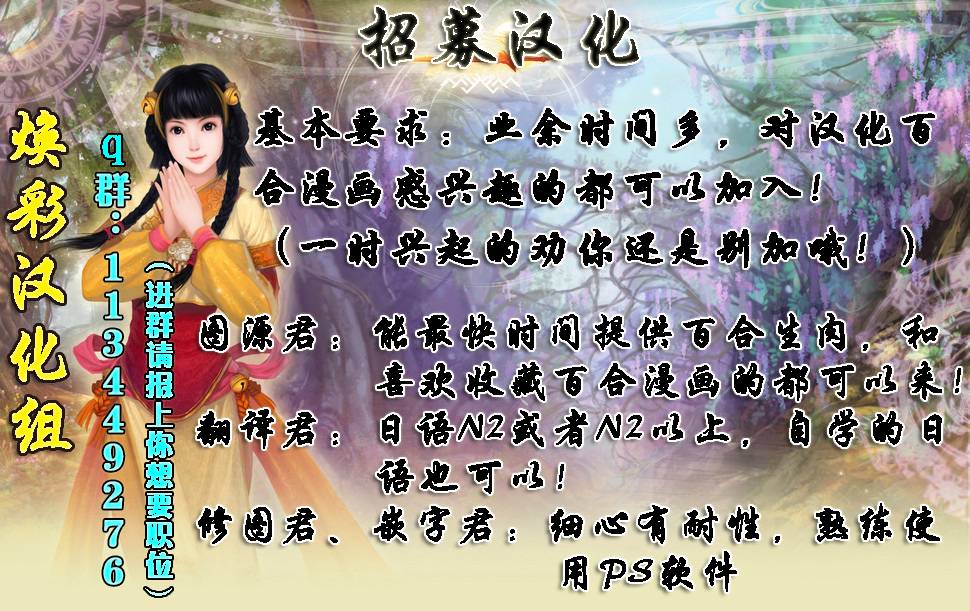 招募汉化
焕彩汉化组
q群：113449276
（进群请报上你想要职位）
基本要求：业余时间多，对汉化百
合漫画感兴趣的都可以加入！
（一时兴起的劝你还是别加哦！）
图源君：能最快时间提供百合生肉，和
喜欢收藏百合漫画的都可以来！
翻译君：日语N2或者N2以上，自学的日
语也可以！
修图君、嵌字君：细心有耐性，熟练使
用PS软件